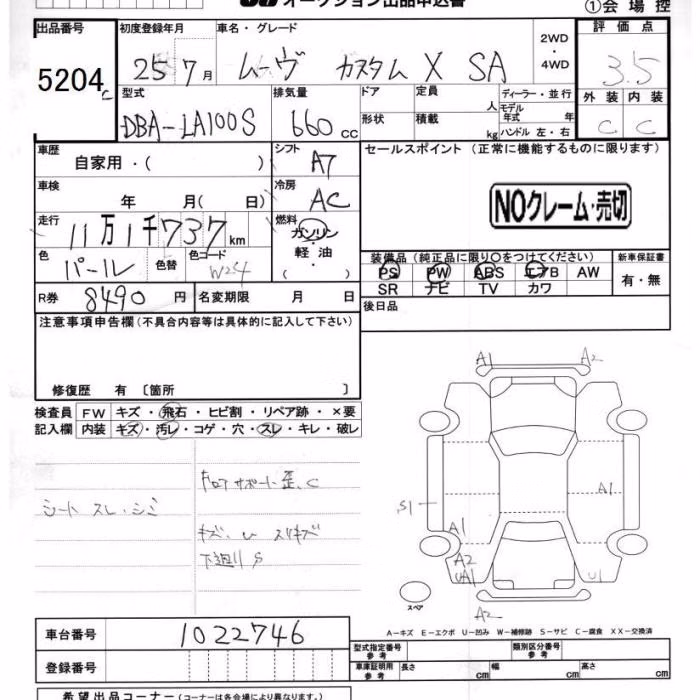 オークション出品申込書
①会場控
出品番号 初度登録年月 車名・グレード 2WD・4WD 評価点
5204 25 7月 ムーヴ カスタム X SA 3.5
型式 排気量 ドア 定員 人 ディーラー・並行 外装 内装
DBA-LA100S 660cc 形状 積載 kg モデル年式 年 ハンドル 左・右 C C
車歴 自家用・( ) シフト A7 セールスポイント (正常に機能するものに限ります)
車検 年 月( 日) 冷房 AC
NOクレーム・売切
走行 11万1千737km 燃料 ガソリン・軽油・( )
色 パール 色替 色コード W24
装備品 (純正品に限り○をつけてください) 新車保証書
PS PW ABS エアB AW 有・無
SR ナビ TV カワ
R券 8490円 名変期限 月 日 後日品
注意事項申告欄 (不具合内容等は具体的に記入して下さい)
修復歴 有 〔箇所 〕
検査員 FW キズ・飛石・ヒビ割・リペア跡・×要
記入欄 内装 キズ・汚レ・コゲ・穴・スレ・キレ・破レ
A1 A2
フロアサポート歪、C
シート スレ・シミ
キズ・U スリキズ
下廻り S
S1 A1
A1
A2
UA1 U1
スペア
A2
A-キズ E-エクボ U-凹み W-補修跡 S-サビ C-腐食 XX-交換済
車台番号 1022746
型式指定番号 参考 類別区分番号 参考
登録番号 車庫証明用 参考 長さ cm 幅 cm 高さ cm
希望出品コーナー (コーナーは各会場により異なります。)